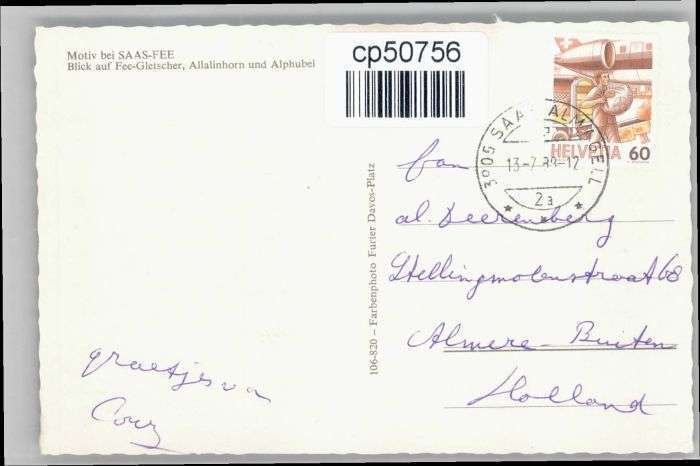 Motiv bei SAAS-FEE
Blick auf Fee-Gletscher, Allalinhorn und Alphubel
cp50756
HELVETIA 60
3905 SAAS-ALMAGELL
13-7.88-12
2a
106-820 – Farbenphoto Furter Davos-Platz
fam
al. Deerenberg
Stellingmolenstraat 68
Almere-Buiten
Holland
groetjes van